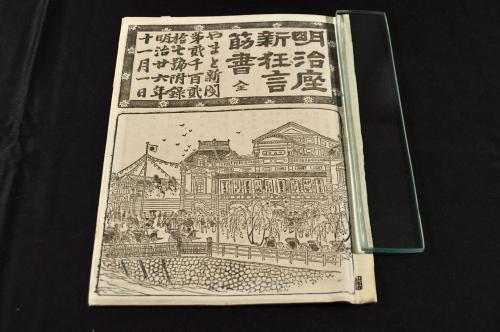 明治座
新狂言
筋書 全
やまと新聞
第貳千百貳
拾七號附録
明治廿六年
十一月一日